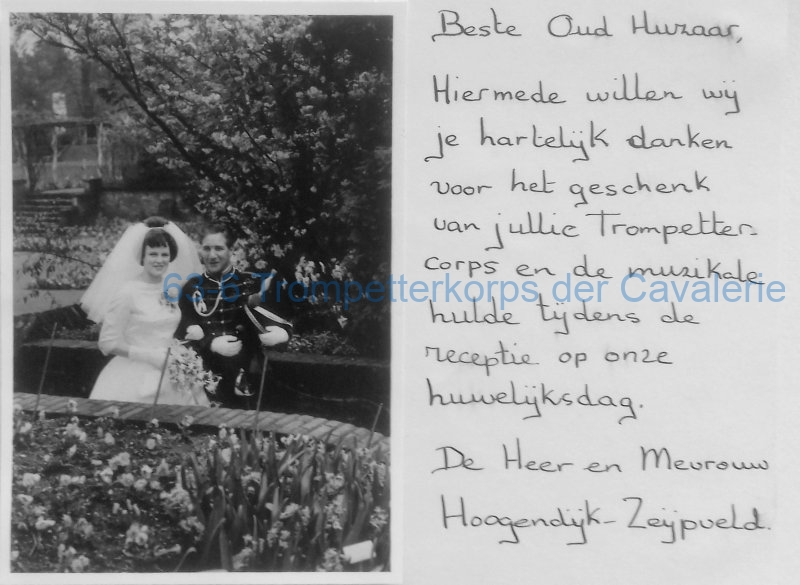 Beste Oud Huzaar,
Hiermede willen wij
je hartelijk danken
voor het geschenk
van jullie Trompetter-
corps en de muzikale
63-6 Trompetterkorps der Cavalerie
hulde tijdens de
receptie op onze
huwelijksdag.
De Heer en Mevrouw
Hoogendijk-Zeijpveld.